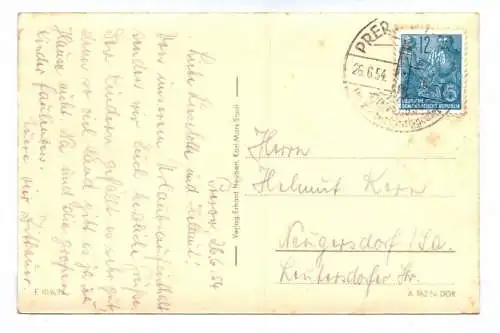 Prerow 26.6.54
Liebe Liselotte und Helmut!
Von unserem Urlaubsaufenthalt
senden wir Euch herzliche Grüße.
Den Kindern gefällt es sehr gut,
denn so viel Sand gibt es ja zu
Hause nicht. Na und die großen
Kinder
Eure vier
Verlag Erhard Neubert, Karl-Marx-Stadt
PRER
26.6.54.
12
DEUTSCHE
DEMOKRATISCHE REPUBLIK
Herrn
Helmut Kern
Neugersdorf / Sa.
Leutersdorfer Str.
DDR